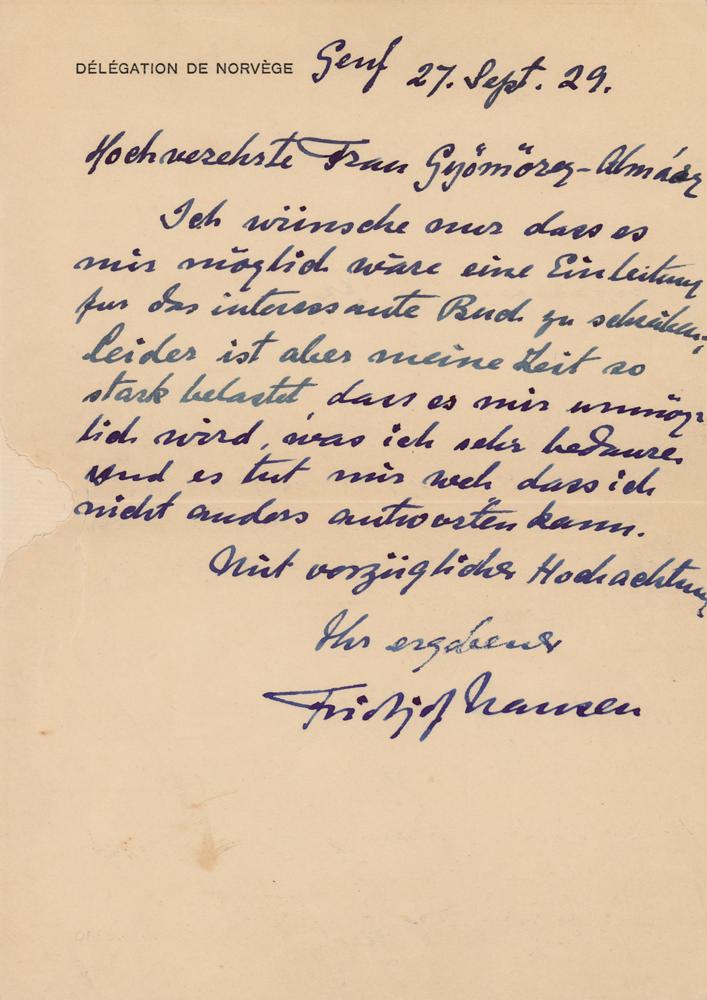 DÉLÉGATION DE NORVÈGE Genf 27. Sept. 29.
Hochverehrte Frau Györnörey-Almásy
Ich wünsche nur dass es
mir möglich wäre eine Einleitung
fur das interessante Buch zu schreiben,
leider ist aber meine Zeit so
stark belastet dass es mir unmög-
lich wird, was ich sehr bedaure
und es tut mir weh dass ich
nicht anders antworten kann.
Mit vorzüglicher Hochachtung
Ihr ergebener
Fridtjof Nansen